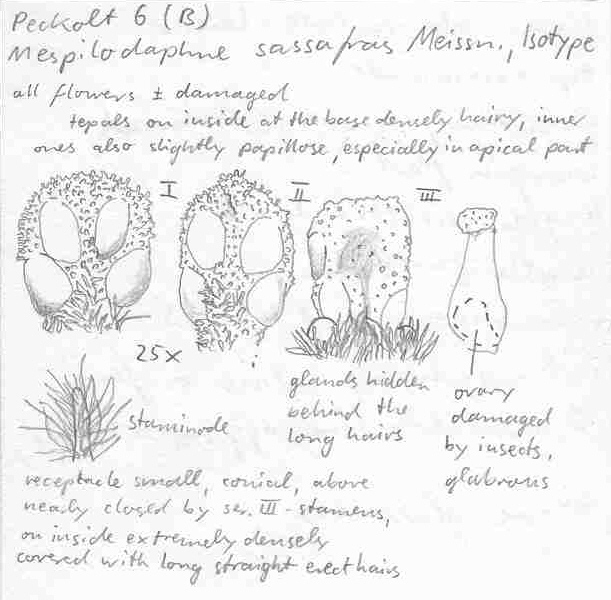 Peckolt 6 (B)
Mespilodaphne sassafras Meissn., Isotype
all flowers ± damaged
tepals on inside at the base densely hairy, inner
ones also slightly papillose, especially in apical part
I
II
III
25x
staminode
glands hidden
behind the
long hairs
ovary
damaged
by insects,
glabrous
receptacle small, conial, above
nearly closed by ser. III-stamens,
on inside extremely densely
covered with long straight erect hairs